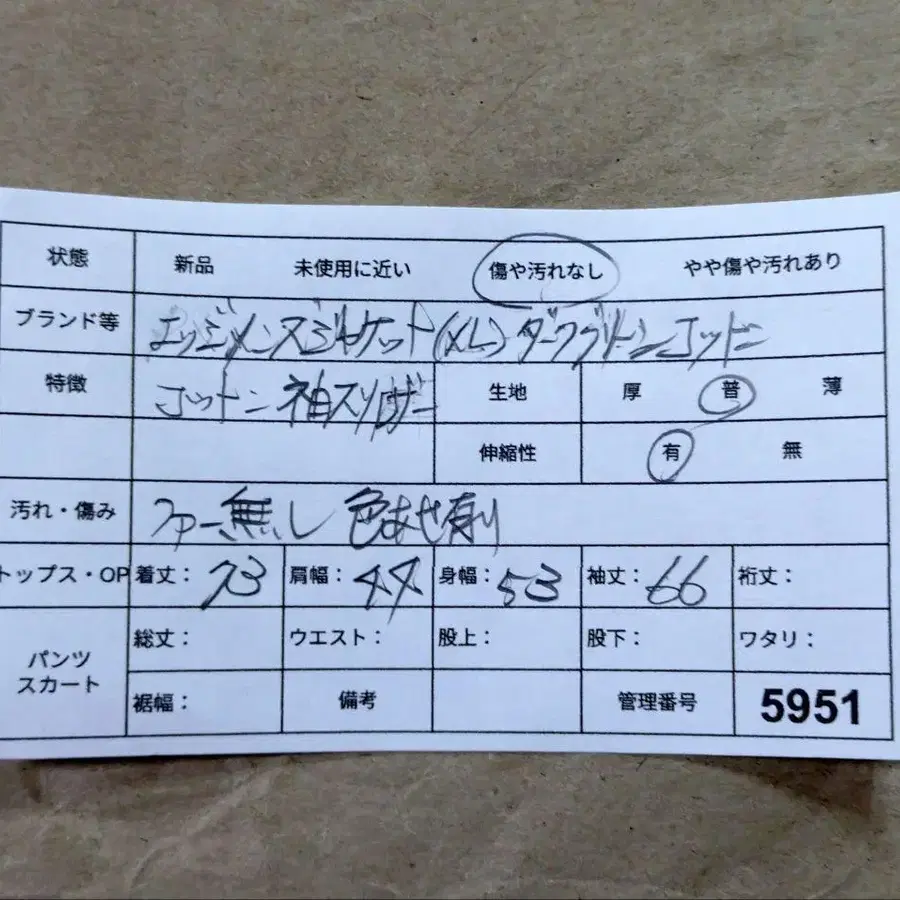 状態 新品 未使用に近い 傷や汚れなし やや傷や汚れあり
ブランド等 エッジメンズジャケット(XL)ダークグリーンコットン
特徴 コットン 袖スリムレザー 生地 厚 普 薄
伸縮性 有 無
汚れ・傷み ファー無し 色あせ有り
トップス・OP 着丈: 73 肩幅: 44 身幅: 53 袖丈: 66 裄丈:
パンツ スカート 総丈: ウエスト: 股上: 股下: ワタリ:
裾幅: 備考 管理番号 5951